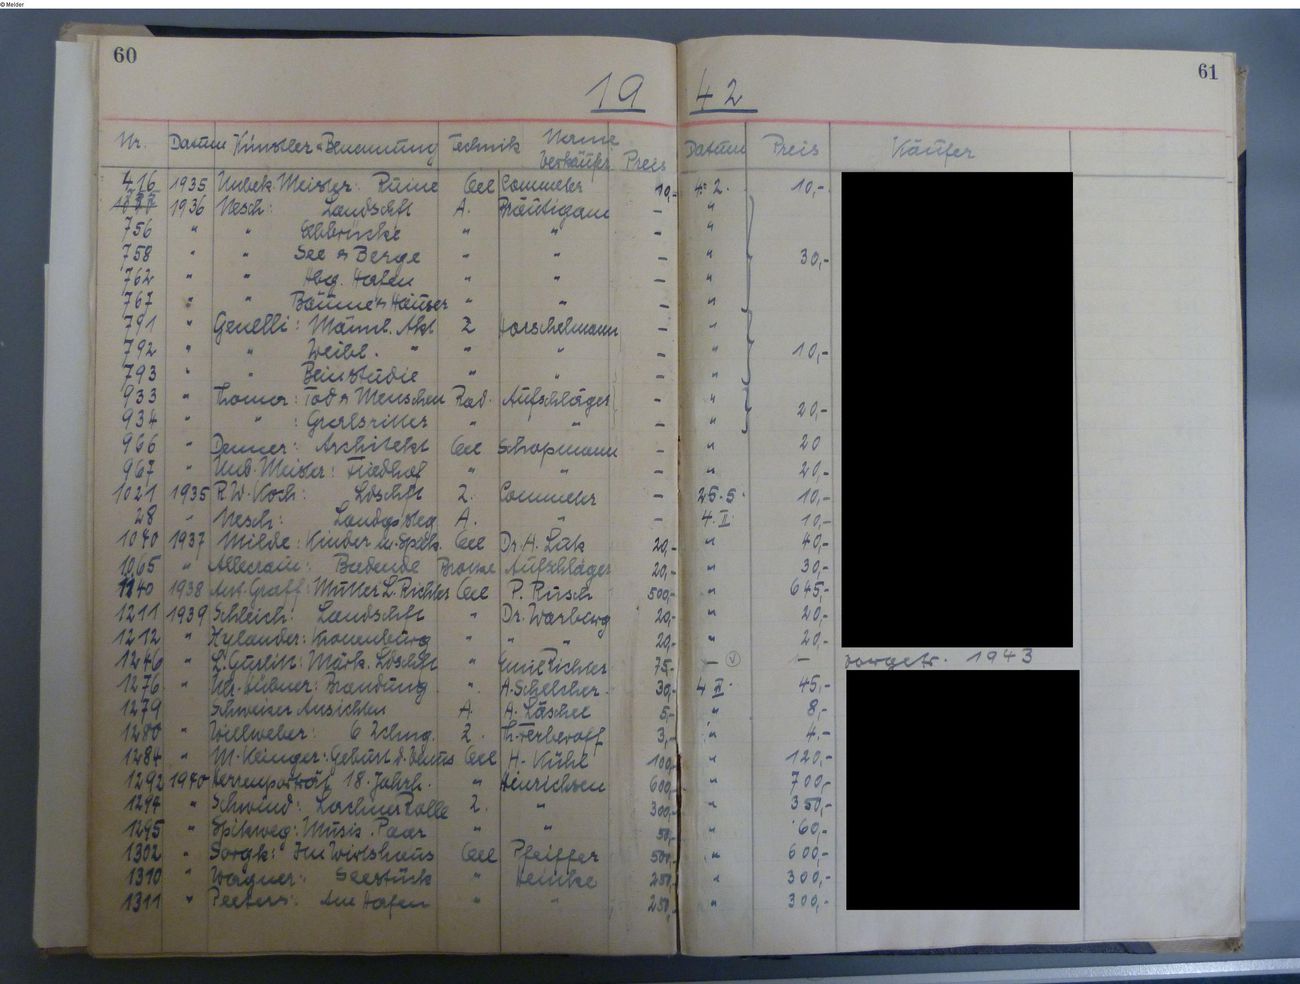 © Melder
60
61
19 42
Nr. Datum Künstler & Benennung Technik Name Verkäufer Preis Datum Preis Käufer
416 1935 Unbek. Meister: Ruine Oel Commeter 10,- 4. 2. 10,-
1936 Nesch: Landschft A. Bräutigam - "
756 " " Elbbrücke " " - "
758 " " See & Berge " " - " 30,-
762 " " Hbg. Hafen " " - "
767 " " Bäume & Häuser " " - "
791 " Genelli: Männl. Akt Z Horschelmann - "
792 " " Weibl. " " " - " 10,-
793 " " Beinstudie " " - "
933 " Thoma: Tod & Menschen Rad. Aufschläger - "
934 " " : Gralsritter " " - " 20,-
966 " Denner: Architekt Oel Schopmann - " 20
967 " Unb. Meister: Friedhof " " - " 20,-
1021 1935 R.W. Koch: Ldschft Z. Commeter - 25.5. 10,-
28 " Nesch: A. " - 4.II. 10,-
1040 1937 Milde: Kinder Oel Dr. H. 20,- " 40,-
1065 " Albecam: Badende Bronze Aufschläger 20,- " 30,-
1140 1938 Ant. Graff: Mutter L. Richter Oel P. Rusch 500,- " 645,-
1211 1939 Schleich: Landschft " Dr. Warburg 20,- " 20,-
1212 " Hylander: Kronenburg " " " 20,- " 20,-
1246 " L. Gurlitt: Märk. Ldschft " Emil Richter 75,- - - vorgetr. 1943
1276 " Ulr. Hübner: Brandung " A. Schelcher 30,- 4 II. 45,-
1279 " Schweizer Ansichten A. A. Läschee 5,- " 8,-
1280 " 6 Zchng. Z. 3,- " 4,-
1284 " Geburt d. Venus Oel H. Kühl 100,- " 120,-
1292 1940 Herrenporträt 18. Jahrh. " Hinrichsen 600,- " 700,-
1294 " Schwind: Lachner Rolle Z. " 300,- " 350,-
1295 " Spitzweg: Musik. Paar " " 50,- " 60,-
1302 " Sorgh: Im Wirtshaus Oel Pfeiffer 500,- " 600,-
1310 " Wagner: Seestück " Heinke 250,- " 300,-
1311 " Peeters: Am Hafen " " 250,- " 300,-